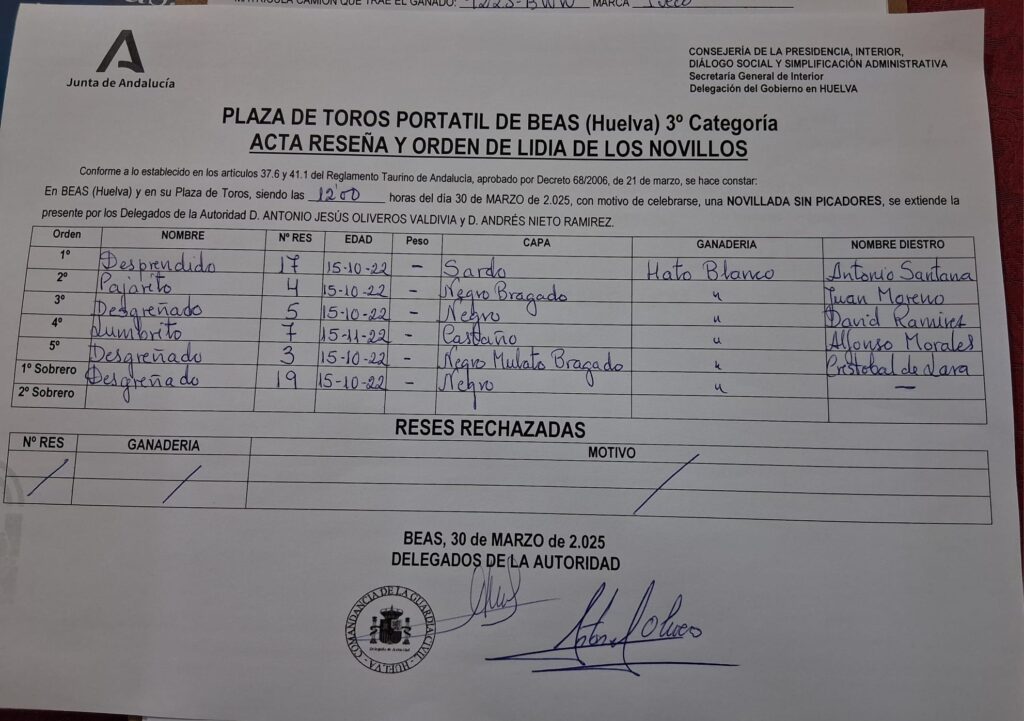 MATRÍCULA CAMIÓN QUE TRAE EL GANADO: 4223-BWW MARCA Iveco
Junta de Andalucía
CONSEJERÍA DE LA PRESIDENCIA, INTERIOR,
DIÁLOGO SOCIAL Y SIMPLIFICACIÓN ADMINISTRATIVA
Secretaría General de Interior
Delegación del Gobierno en HUELVA
PLAZA DE TOROS PORTATIL DE BEAS (Huelva) 3º Categoría
ACTA RESEÑA Y ORDEN DE LIDIA DE LOS NOVILLOS
Conforme a lo establecido en los artículos 37.6 y 41.1 del Reglamento Taurino de Andalucía, aprobado por Decreto 68/2006, de 21 de marzo, se hace constar:
En BEAS (Huelva) y en su Plaza de Toros, siendo las 12'00 horas del día 30 MARZO de 2.025, con motivo de celebrarse, una NOVILLADA SIN PICADORES, se extiende la
presente por los Delegados de la Autoridad D. ANTONIO JESÚS OLIVEROS VALDIVIA y D. ANDRÉS NIETO RAMIREZ.
Orden NOMBRE Nº RES EDAD Peso CAPA GANADERIA NOMBRE DIESTRO
1º Desprendido 17 15-10-22 - Sardo Hato Blanco Antonio Santana
2º Pajarito 4 15-10-22 - Negro Bragado " Juan Moreno
3º Desgreñado 5 15-10-22 - Negro " David Ramirez
4º Lumbrito 7 15-11-22 - Castaño " Alfonso Morales
5º Desgreñado 3 15-10-22 - Negro Mulato Bragado " Cristobal de Lara
1º Sobrero Desgreñado 19 15-10-22 - Negro " -
2º Sobrero
RESES RECHAZADAS
Nº RES GANADERIA MOTIVO
BEAS, 30 de MARZO de 2.025
DELEGADOS DE LA AUTORIDAD
COMANDANCIA DE LA GUARDIA CIVIL - HUELVA -